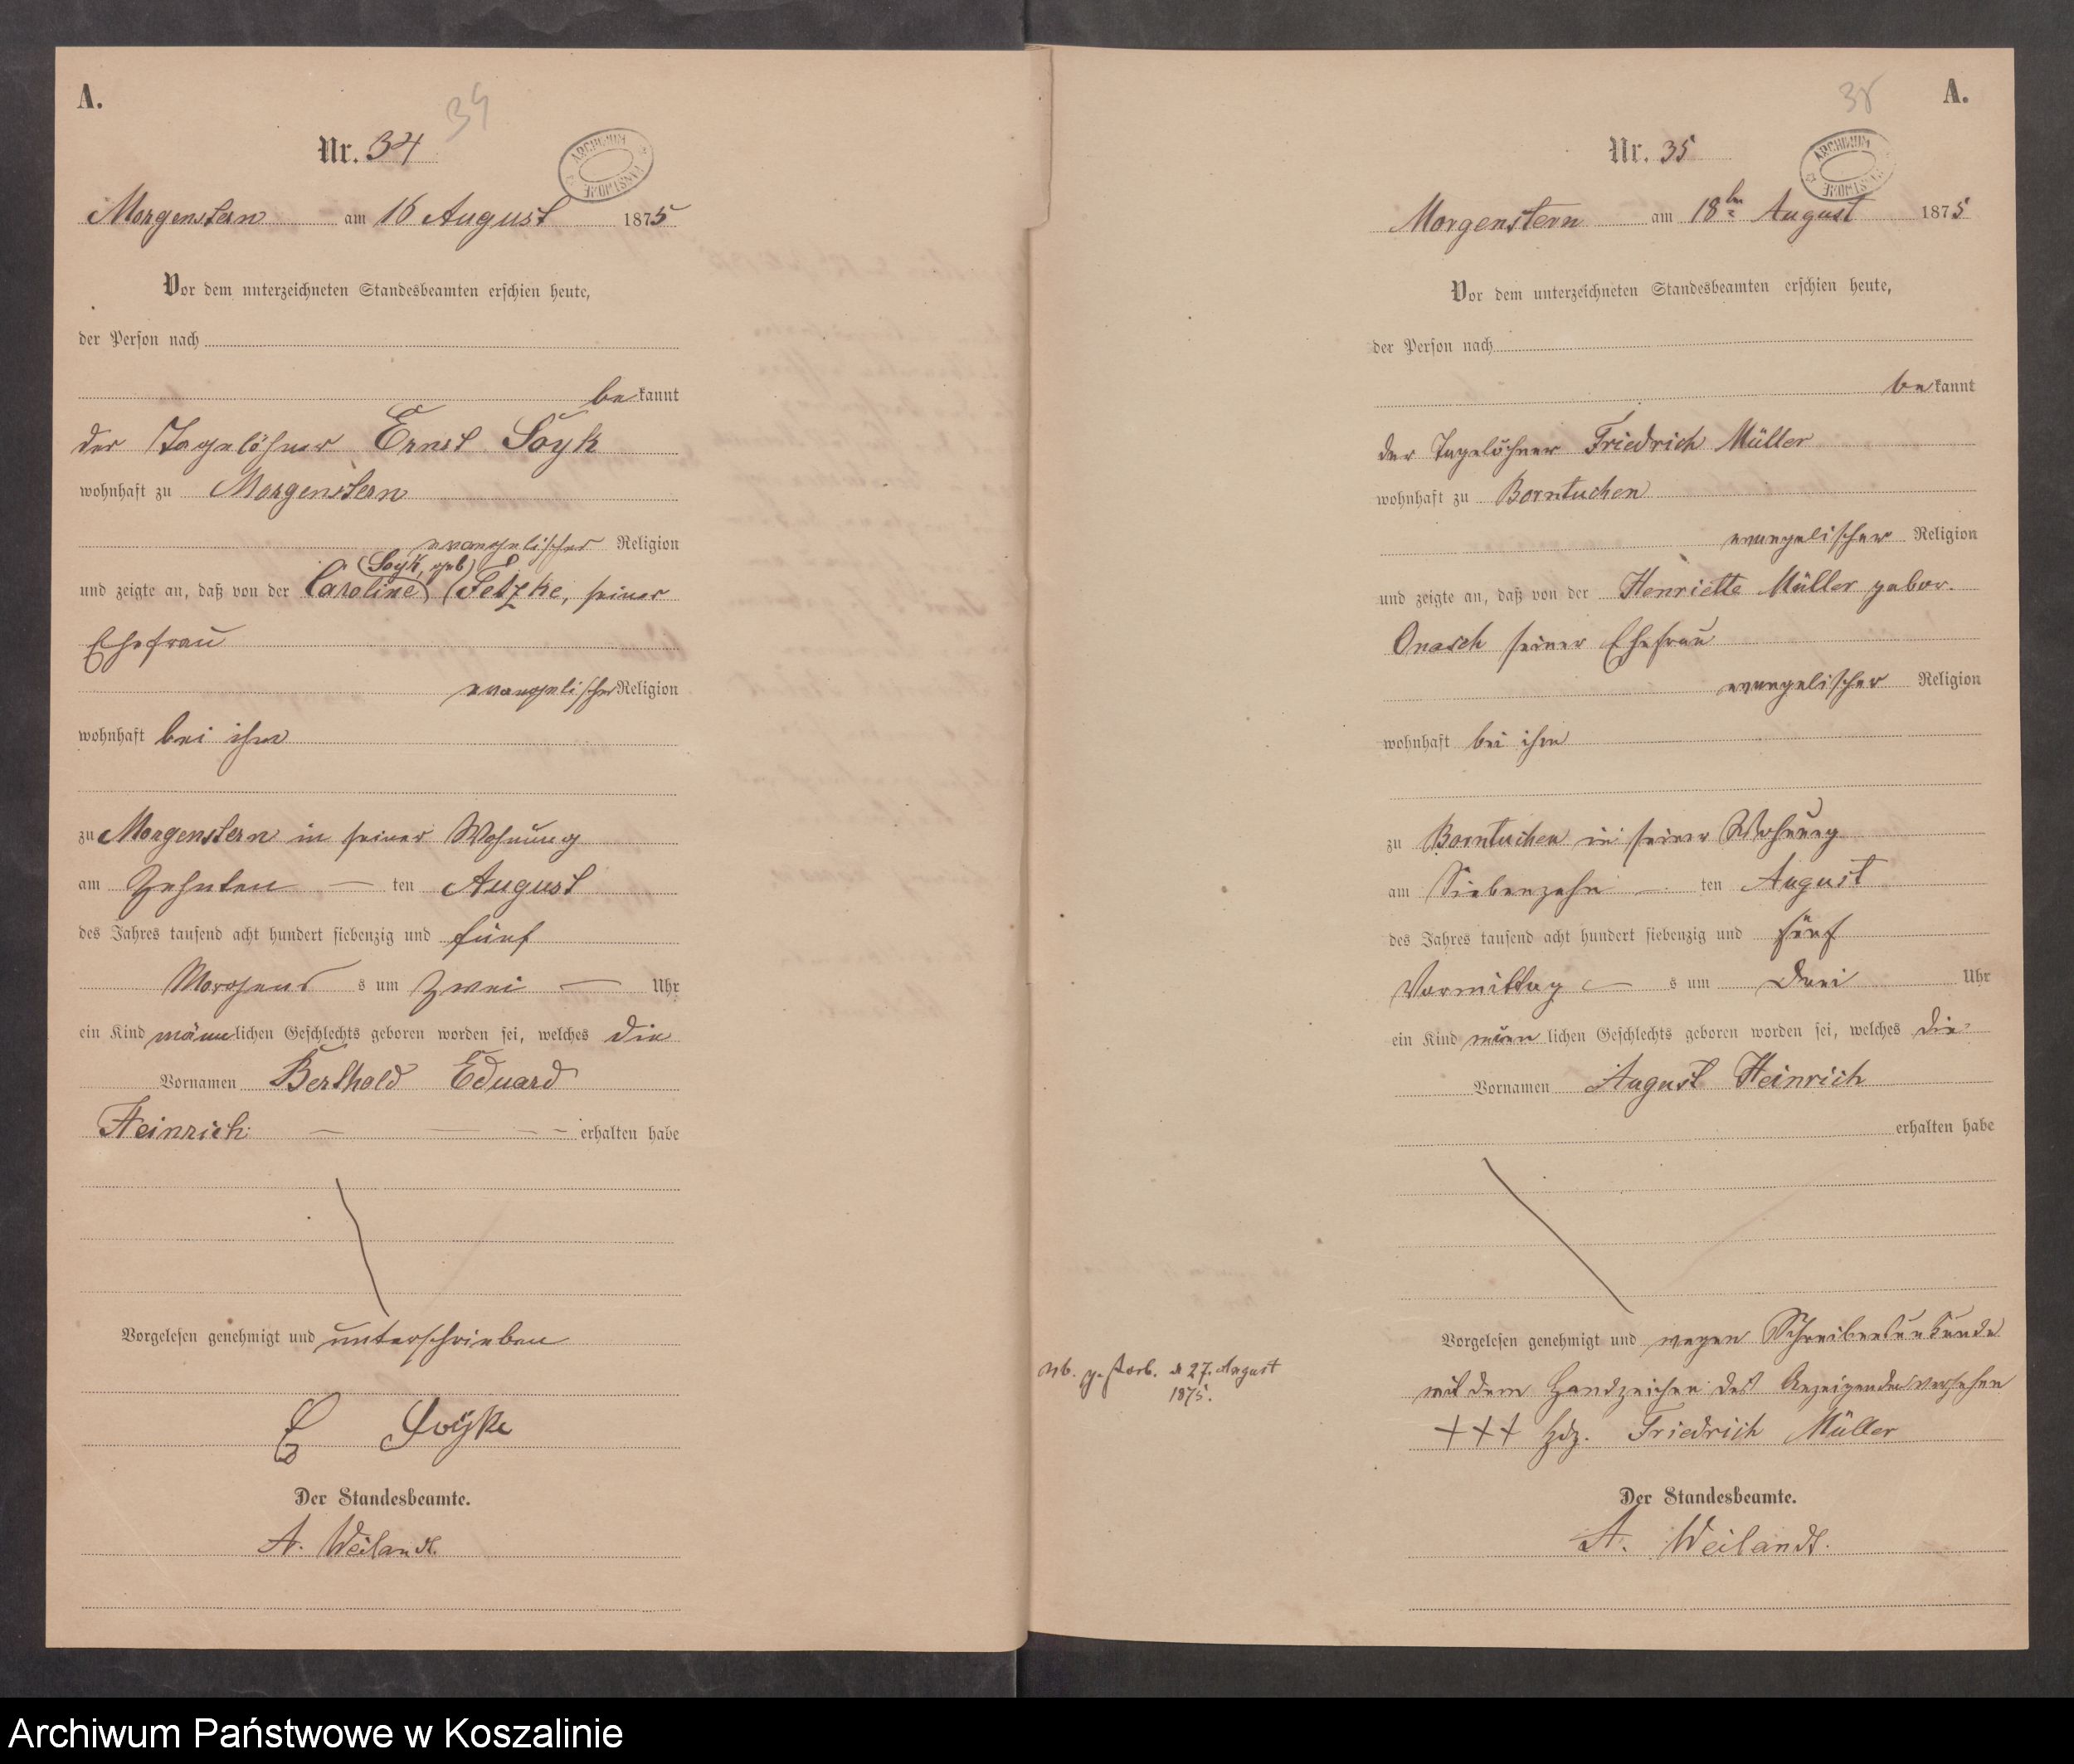 A.
34
Nr. 34
ARCHIWUM
PAŃSTWOWE
Morgenstern am 16 August 1875
Vor dem unterzeichneten Standesbeamten erschien heute,
der Person nach
be kannt
der Tagelöhner Ernst Soyk
wohnhaft zu Morgenstern
evangelischer Religion
(Soyk, geb)
und zeigte an, daß von der Caroline (Fetzke, seiner
Ehefrau
evangelischer Religion
wohnhaft bei ihm
zu Morgenstern in seiner Wohnung
am Zehnten — ten August
des Jahres tausend acht hundert siebenzig und fünf
Morgens s um Zwei — Uhr
ein Kind männlichen Geschlechts geboren worden sei, welches die
Vornamen Berthold Eduard
Heinrich — — — erhalten habe
Vorgelesen genehmigt und unterschrieben
E Soyke
Der Standesbeamte.
A. Weilandt.
A.
35
Nr. 35
ARCHIWUM
PAŃSTWOWE
Morgenstern am 18ten August 1875
Vor dem unterzeichneten Standesbeamten erschien heute,
der Person nach
be kannt
der Tagelöhner Friedrich Müller
wohnhaft zu Borntuchen
evangelischer Religion
und zeigte an, daß von der Henriette Müller gebor.
Onasch seiner Ehefrau
evangelischer Religion
wohnhaft bei ihm
zu Borntuchen in seiner Wohnung
am Siebenzehn — ten August
des Jahres tausend acht hundert siebenzig und fünf
Vormittag — s um Drei Uhr
ein Kind männ lichen Geschlechts geboren worden sei, welches die
Vornamen August Heinrich
erhalten habe
Vorgelesen genehmigt und wegen Schreibensunkunde
mit dem Handzeichen des Anzeigenden versehen
+++ Hdz. Friedrich Müller
Der Standesbeamte.
A. Weilandt.
Nb. gestorb. d 27. August
1875.
Archiwum Państwowe w Koszalinie